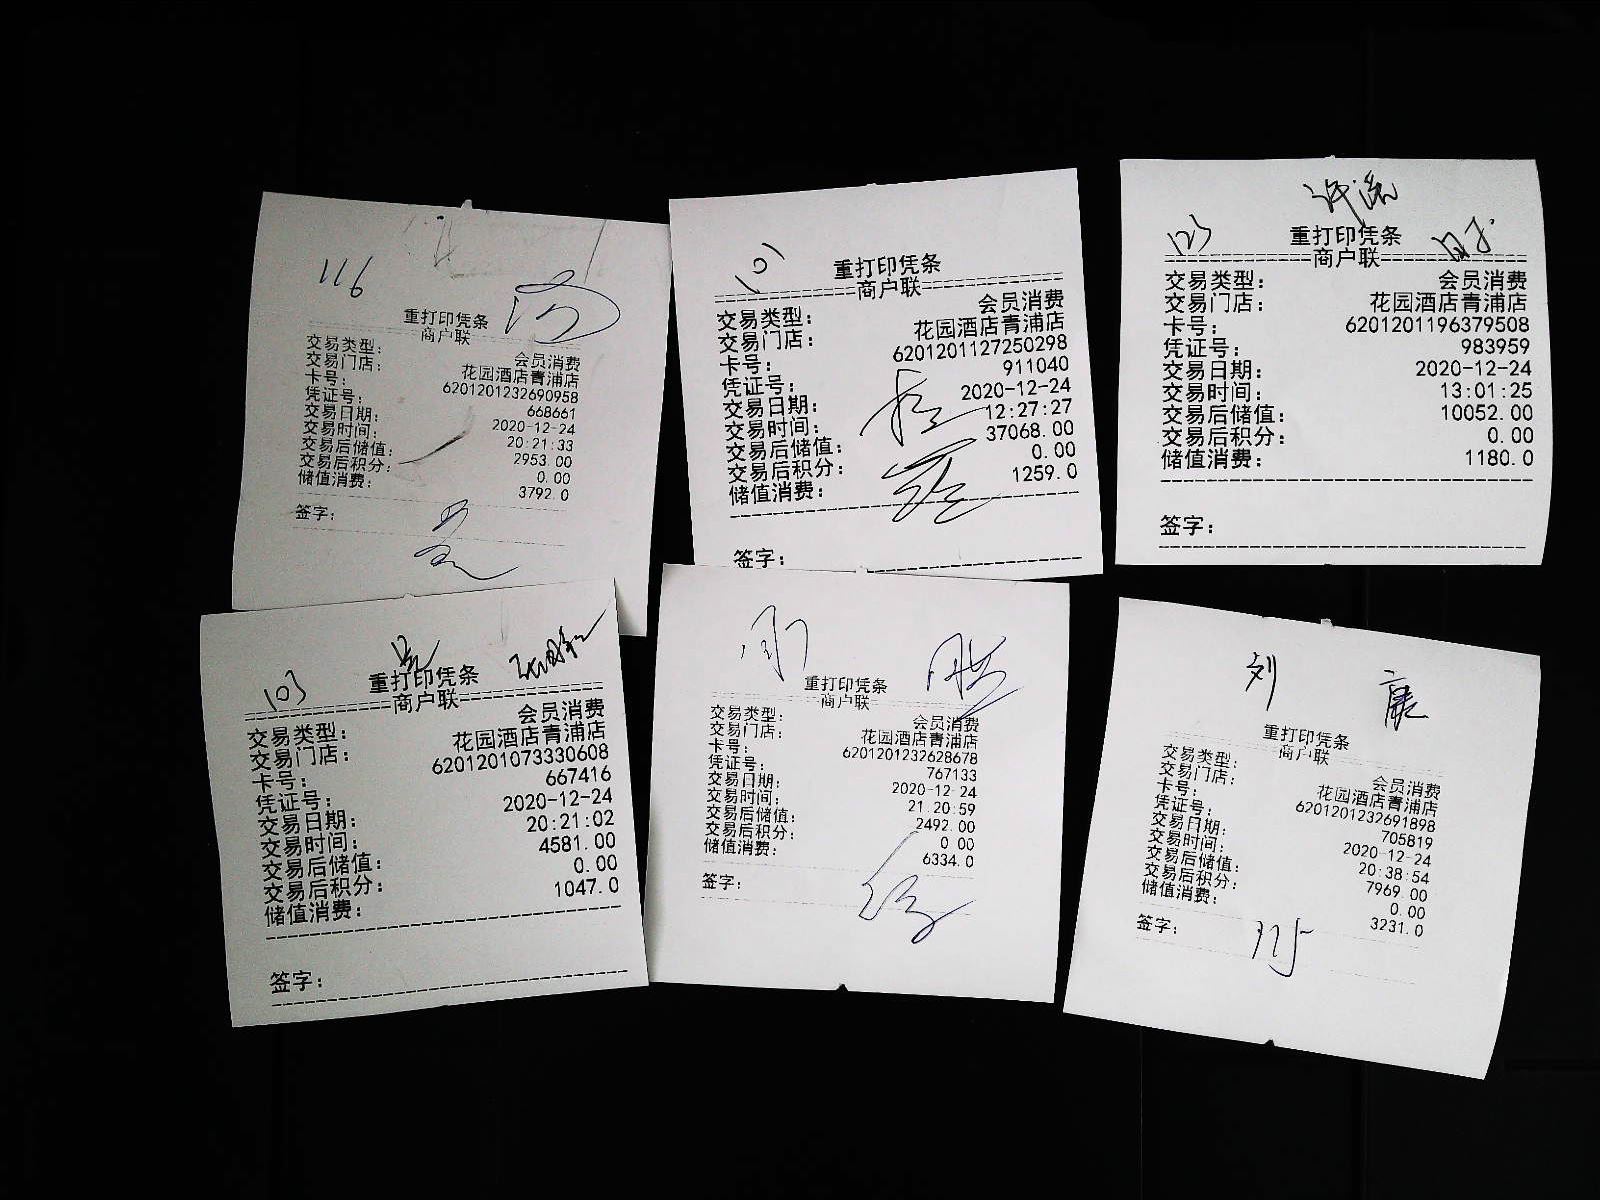 116
重打印凭条
商户联
交易类型: 会员消费
交易门店: 花园酒店青浦店
卡号: 6201201232690958
凭证号: 668661
交易日期: 2020-12-24
交易时间: 20:21:33
交易后储值: 2953.00
交易后积分: 0.00
储值消费: 3792.0
签字:
101
重打印凭条
商户联
交易类型: 会员消费
交易门店: 花园酒店青浦店
卡号: 6201201127250298
凭证号: 911040
交易日期: 2020-12-24
交易时间: 12:27:27
交易后储值: 37068.00
交易后积分: 0.00
储值消费: 1259.0
签字:
123
重打印凭条
商户联
交易类型: 会员消费
交易门店: 花园酒店青浦店
卡号: 6201201196379508
凭证号: 983959
交易日期: 2020-12-24
交易时间: 13:01:25
交易后储值: 10052.00
交易后积分: 0.00
储值消费: 1180.0
签字:
103
重打印凭条
商户联
交易类型: 会员消费
交易门店: 花园酒店青浦店
卡号: 6201201073330608
凭证号: 667416
交易日期: 2020-12-24
交易时间: 20:21:02
交易后储值: 4581.00
交易后积分: 0.00
储值消费: 1047.0
签字:
重打印凭条
商户联
交易类型: 会员消费
交易门店: 花园酒店青浦店
卡号: 6201201232628678
凭证号: 767133
交易日期: 2020-12-24
交易时间: 21:20:59
交易后储值: 2492.00
交易后积分: 0.00
储值消费: 6334.0
签字:
刘 康
重打印凭条
商户联
交易类型: 会员消费
交易门店: 花园酒店青浦店
卡号: 6201201232691898
凭证号: 705819
交易日期: 2020-12-24
交易时间: 20:38:54
交易后储值: 7969.00
交易后积分: 0.00
储值消费: 3231.0
签字: